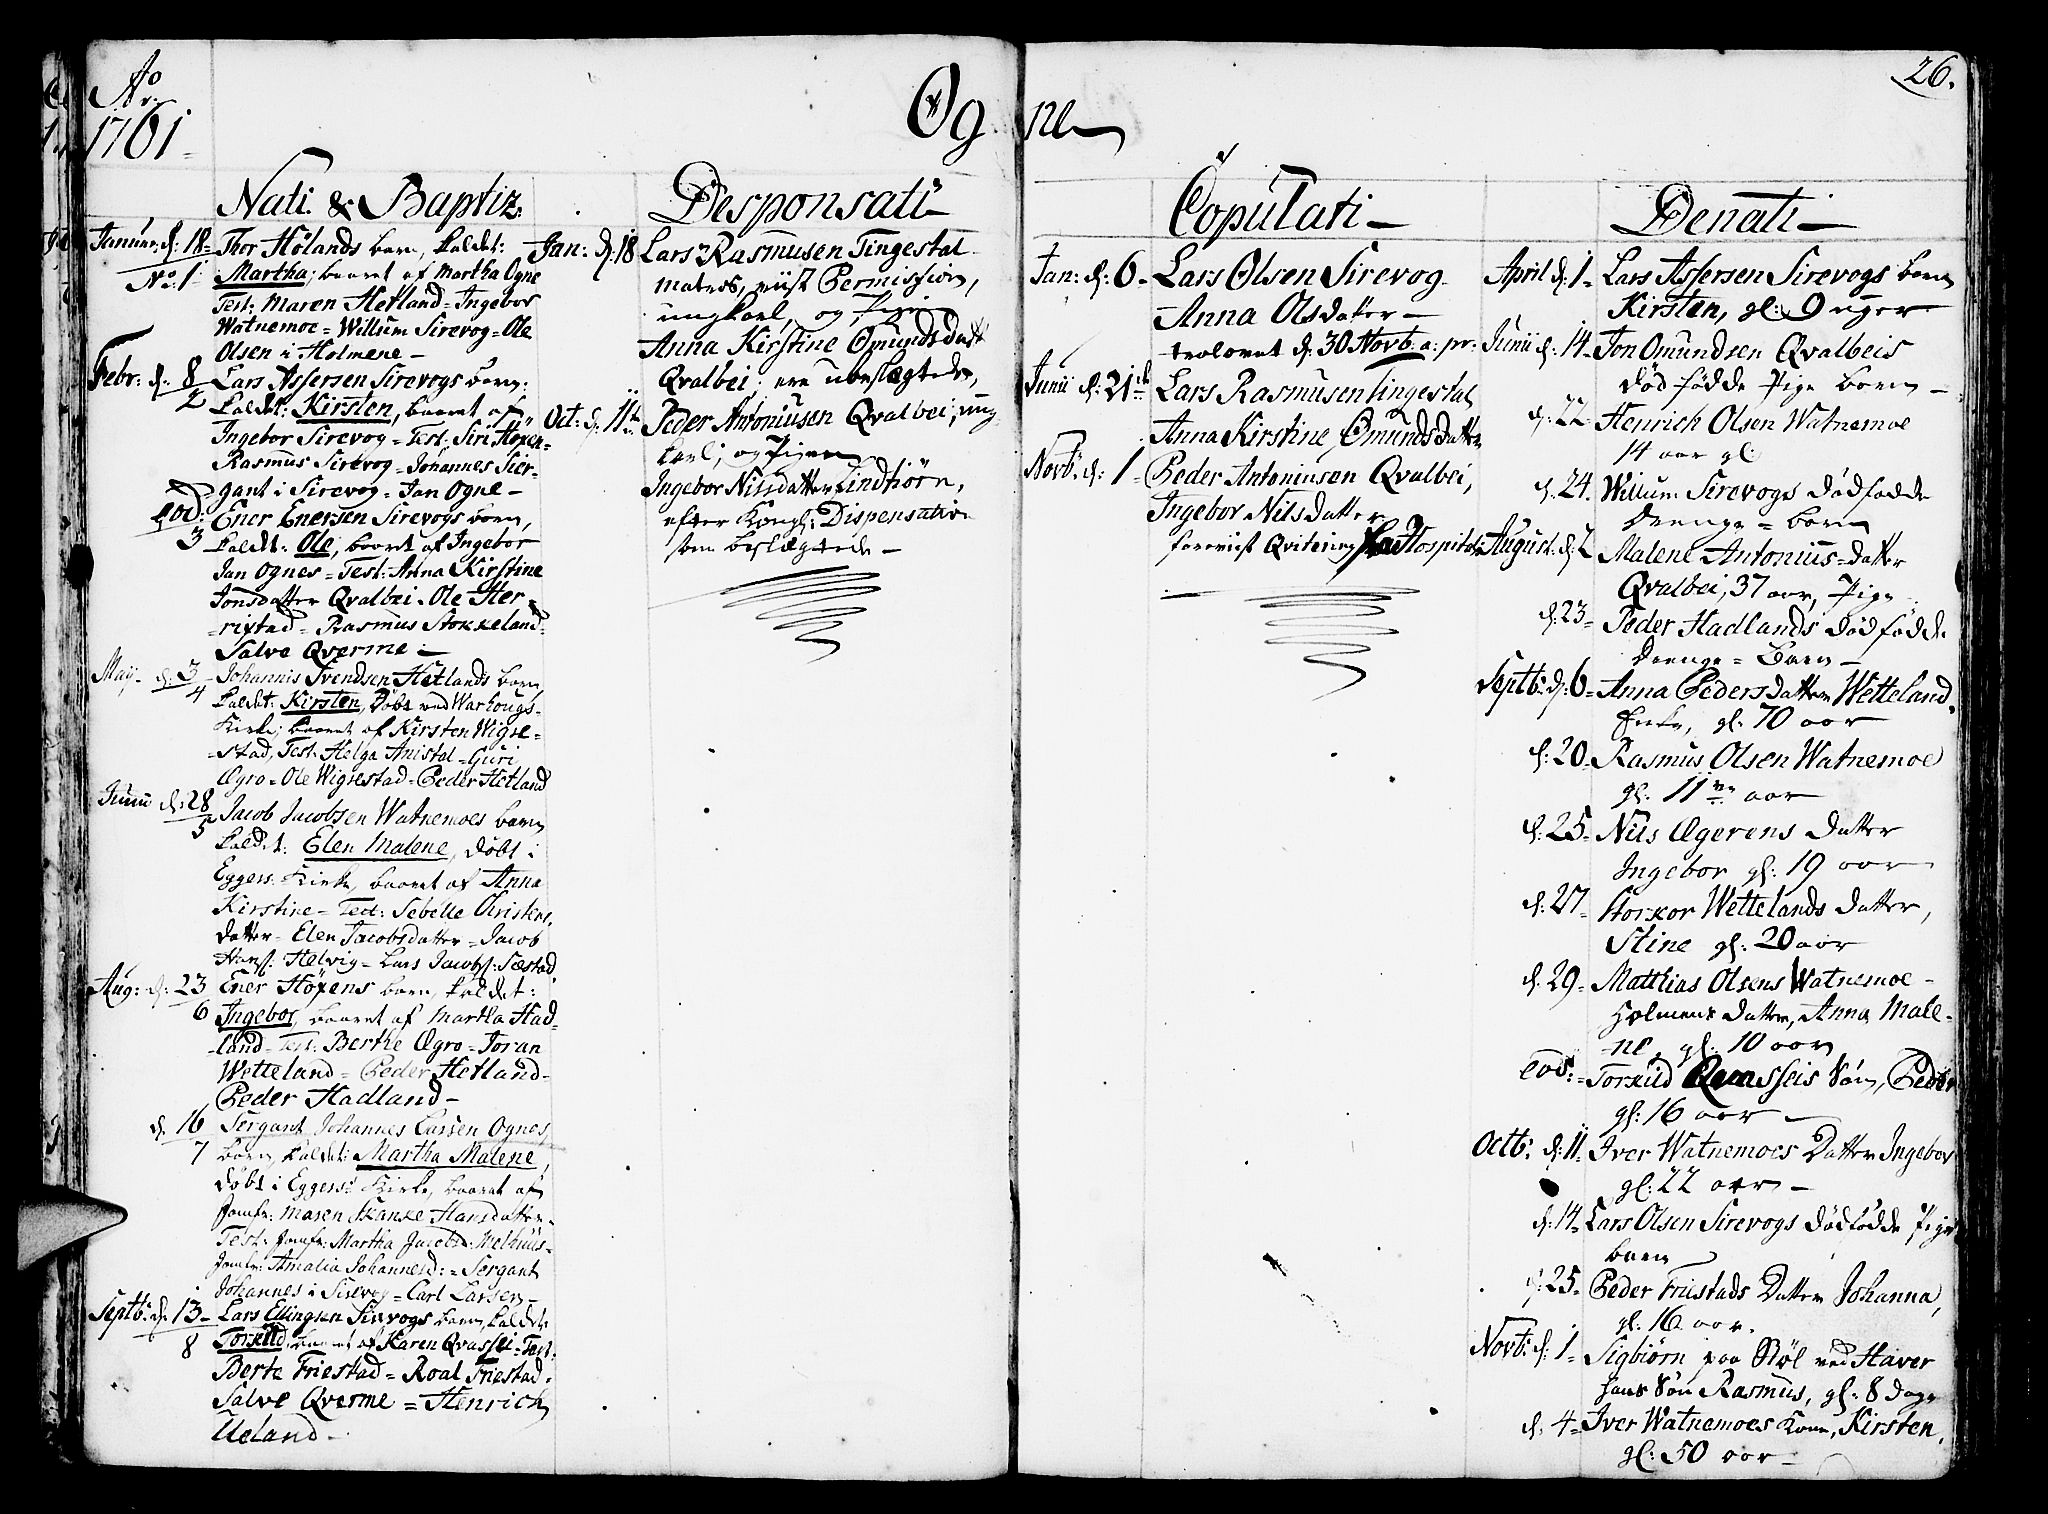 Ao
1761
Og ne
26.
Nati & Baptiz
Januar: d: 18 Thor Hølands barn, kaldet:
No: 1 Martha; baaret af Martha Ogne
Test: Maren Hetland = Ingebor
Watnemoe = Willum Sirevog = Ole
Olsen i Holmene
Febr: d: 8 Lars Assersen Sirevogs barn:
2 kaldet: Kirsten, baaret af
Ingebor Sirevog = Test: Siri Høxen
Rasmus Sirevog = Johannes Sier-
gant i Sirevog = Jan Ogne
eod: Ener Enersen Sirevogs barn,
3 kaldt: Ole, baaret af Ingebor
Jan Ognes = Test: Anna Kirstine
Jonsdatter Qvalbei = Ole Her-
ristad = Rasmus Stokkeland =
Salve Qverme
May d: 3 Johannis Svendsen Hetlands barn
4 kaldet: Kirsten, døbt ved Warhougs-
Kirke; baaret af Kirsten Wigre-
stad, Test: Helga Anistal = Guri
Ægro = Ole Wigrestad = Peder Hetland
Junii d: 28 Jacob Jacobsen Watnemoes barn
5 kaldet: Elen Malene, døbt i
Eggers: Kirke, baaret af Anna
Kirstine = Test: Sebelle Christens
datter = Elen Jacobsdatter = Jacob
Hans: Helvig = Lars Jacobs: Sæstad
Aug: d: 23 Ener Høxens barn, kaldet:
6 Ingebor, baaret af Martha Had-
land = Test: Berthe Ægro = Joran
Wetteland = Peder Hetland =
Peder Hadland
d. 16 Sergant Johannes Larsen Ognes,
7 barn, kaldet: Martha Malene,
døbt i Eggers: Kirke, baaret af
Jomfr: Maren Skanke Hansdatter =
Test: Jomfr: Martha Jacobsd: Welhuus =
Jomfr: Amalia Johannesd: = Sergant
Johannes i Sirevog = Carl Larsen
Septb: d: 13 Lars Ellingsen Sirevogs barn, kaldet
8 Torkild, baaret af Karen Qvassei = Test:
Berte Friestad = Roal Friestad =
Salve Qverme = Henrich
Ueland
Desponsati
Jan: d: 18 Lars Rasmusen Tingestal
maters, viist Permission,
ungkarl, og Pige
Anna Kirstine Omundsdatt
Qvalbei; ere ubeslægtede,
Oct: d: 11te Peder Antoniusen Qvalbei, ung-
karl; og Pigen
Ingebor Nilsdatter Lindtiørn,
efter Kongl: Dispensation
som beslægtede
Copulati
Jan: d: 6 Lars Olsen Sirevog
Anna Olsdatter
trolovet d: 30 Novb: a: pr:
Junii d: 21de Lars Rasmusen Tingestal
Anna Kirstine Omundsdatter
Novb: d: 1 Peder Antoniusen Qvalbei,
Ingebor Nilsdatter
foreviist Qvitering fra Hospital:
Denati
April d: 1 Lars Assersen Sirevogs barn
Kirsten, gl: 9 uger
Junii d: 14 Jon Omundsen Qvalbeis
død fødde Pige barn
d: 22 Henrich Olsen Watnemoe
14 aar gl:
d: 24. Willum Sirevogs dødfødde
Drenge = barn
August: d: 2 Malene Antonius=datter
Qvalbei, 37 aar, Pige
d: 23 Peder Hadlands dødfødde
Drenge = Barn
Septb: d: 6 Anna Pedersdatter Wetteland,
Enke, gl: 70 aar
d: 20 Rasmus Olsen Watnemoe
gl: 11ve aar
d: 25 Nils Ægerens datter
Ingebor gl: 19 aar
d: 27 Storkor Wettelands datter,
Stine gl: 20 aar
d: 29 Matthias Olsens Watnemoe
Holmens datter, Anna Male-
ne, gl: 10 aar
eod: Torkild Qvasseis Søn, Peder
gl: 16 aar
Octb: d: 11 Iver Watnemoes Datter Ingebor
gl: 22 aar
d: 14 Lars Olsen Sirevogs dødfødde Pige
barn
d: 25 Peder Friestads Datter Johanna,
gl: 16 aar.
Novb: d: 1 Sigbiørn paa Støl ved Haver
hans Søn Rasmus, gl: 8 dage
d: 4 Iver Watnemoes Kone, Kirsten,
gl: 50 aar